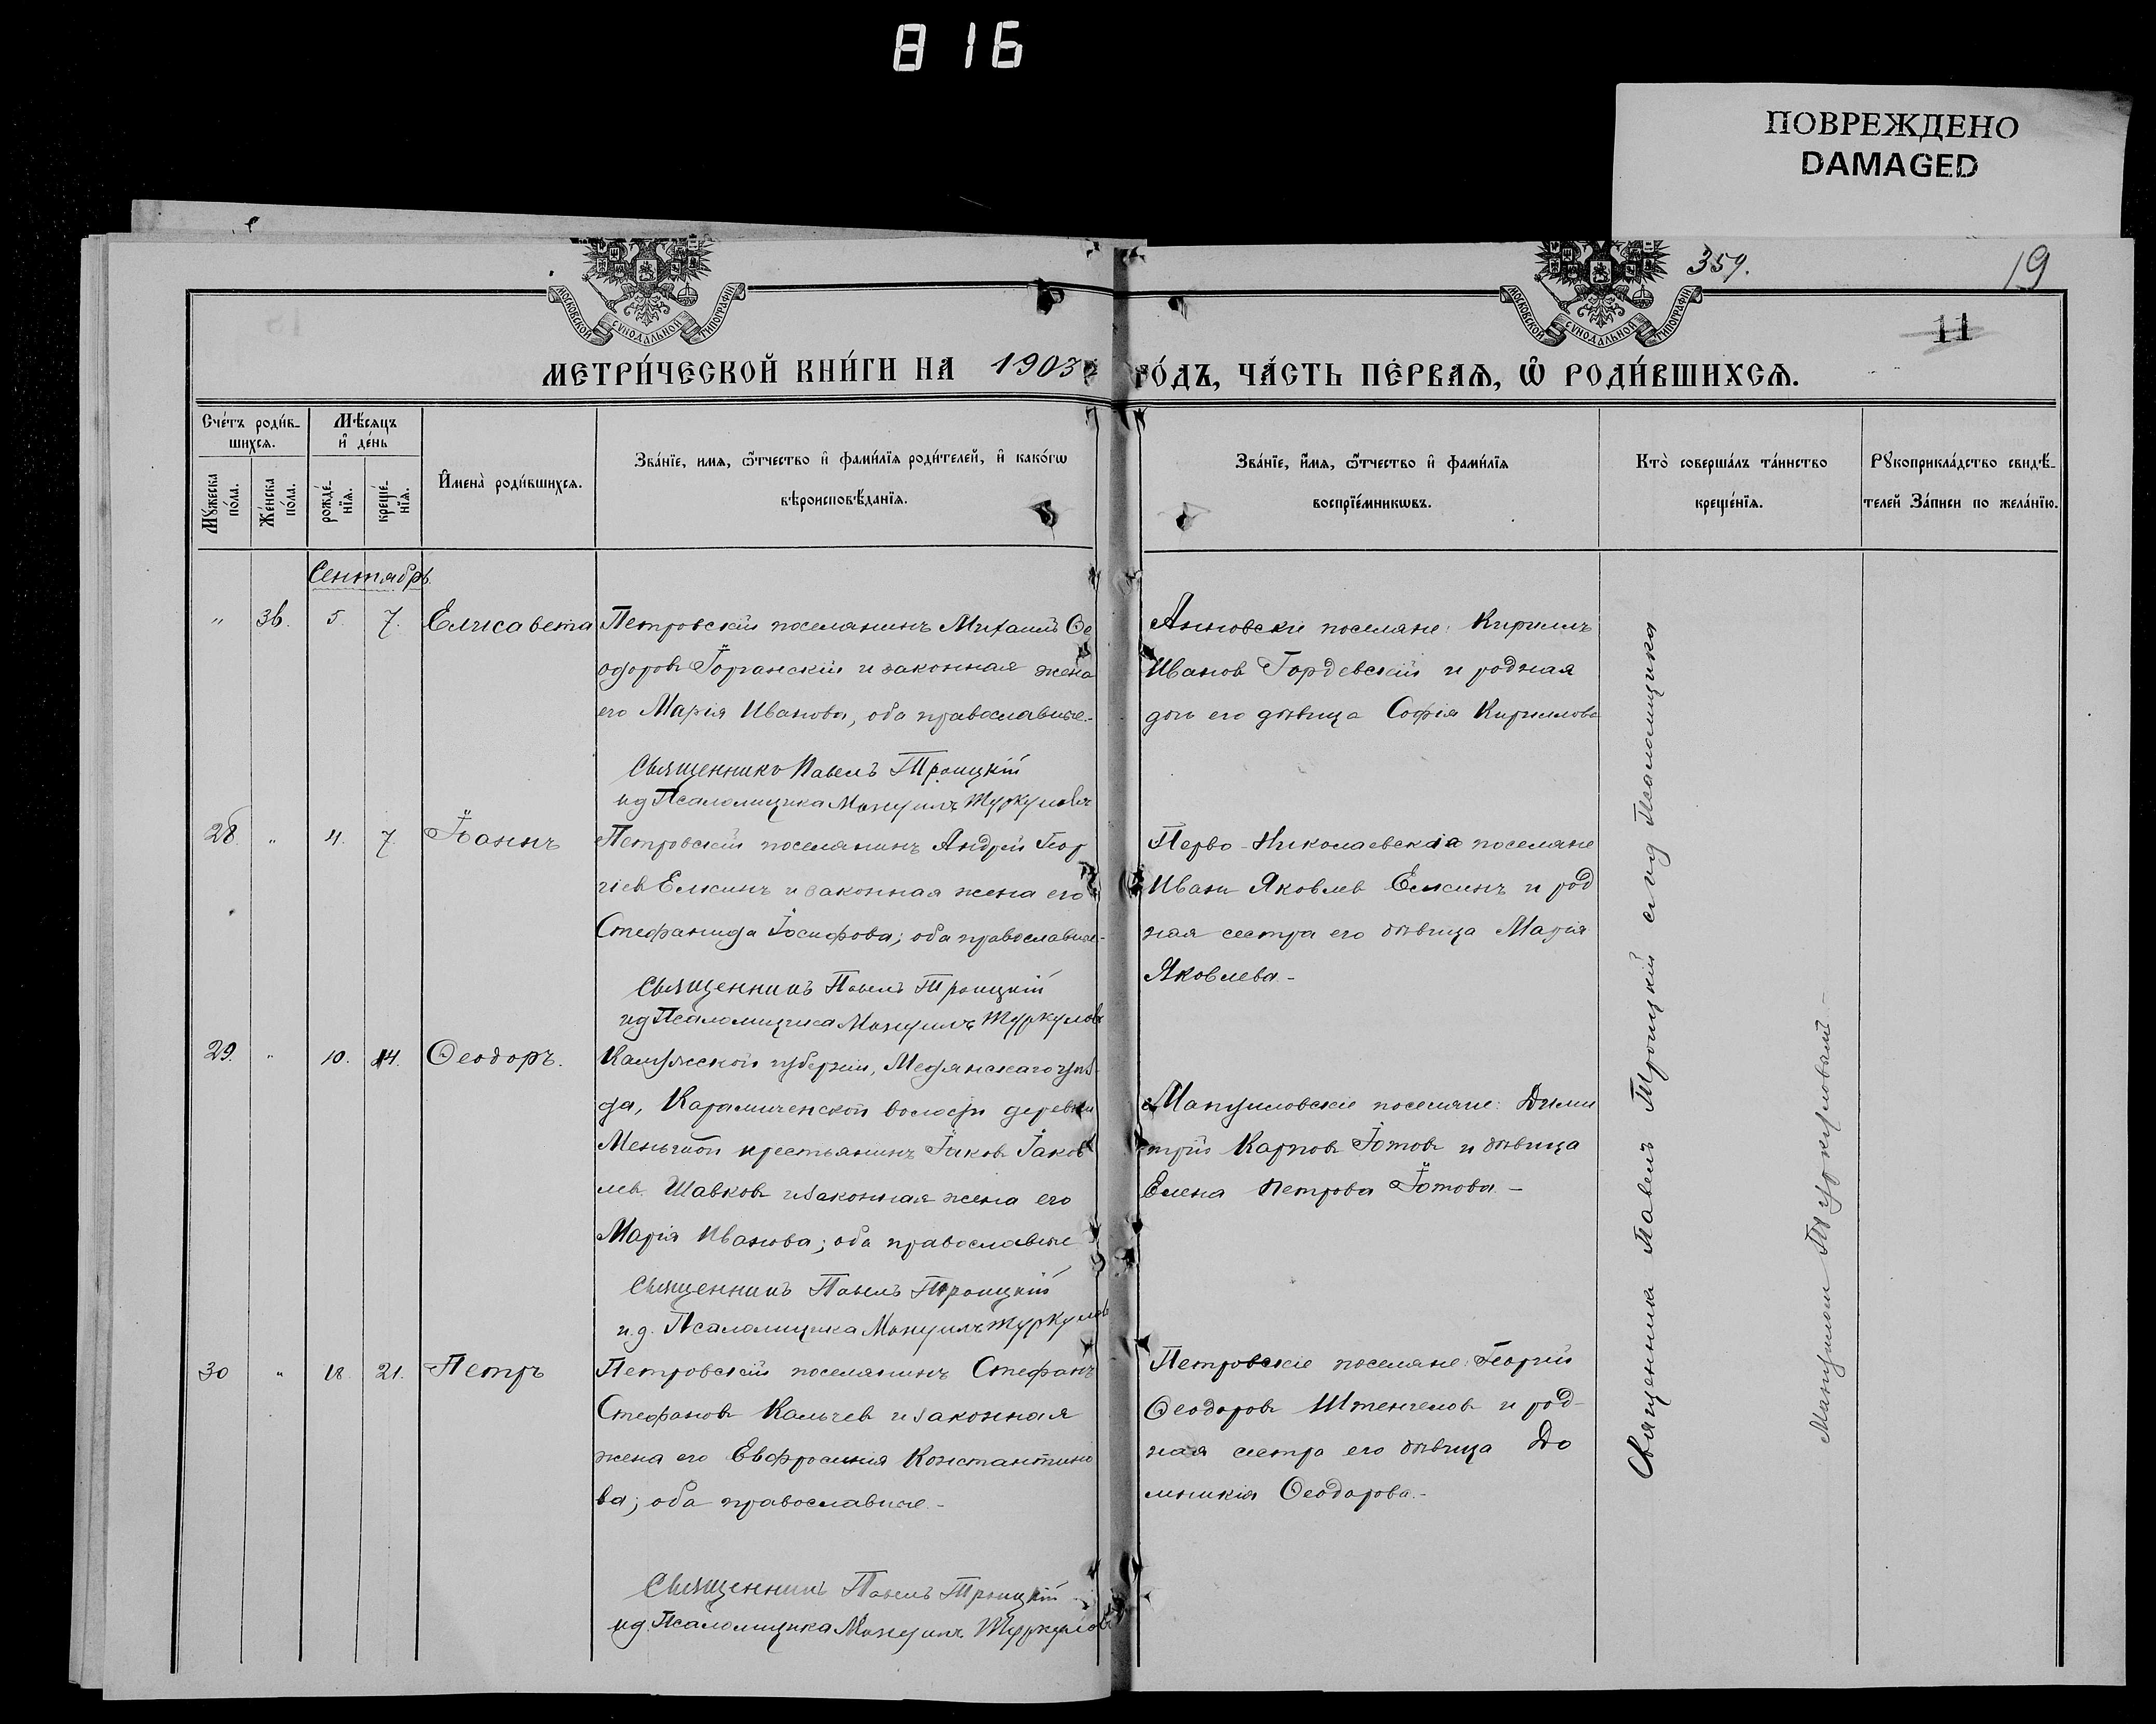 816
ПОВРЕЖДЕНО
DAMAGED
359.
19
11
МОСКОВСКОЙ СѴНОДАЛЬНОЙ ТИПОГРАФІИ
МОСКОВСКОЙ СѴНОДАЛЬНОЙ ТИПОГРАФІИ
МЕТРИ́ЧЕСКОЙ КНИ́ГИ НА 1903 ГО́ДЪ, ЧА́СТЬ ПЕ́РВАѦ, Ѿ РОДИ́ВШИХСѦ.
Сче́тъ роди́в-
шихсѧ.
Мѣ́сѧцъ
и҆ де́нь
Мꙋ́жеска
по́ла.
Же́нска
по́ла.
рожде́-
нїѧ.
креще́-
нїѧ.
И҆мена̀ роди́вшихсѧ.
Зва́нїе, имѧ, ѻ҆́тчество и҆ фами́лїѧ роди́телей, и҆ како́гѡ
вѣроисповѣ́данїѧ.
Зва́нїе, и҆́мѧ, ѻ҆́тчество и҆ фами́лїѧ
воспрїе́мникѡвъ.
Кто̀ соверша́лъ та́инство
креще́нїѧ.
Рꙋкоприкла́дство свидѣ́-
телей За́писи по жела́нїю.
Сентябрь.
" 36. 5. 7. Елисавета
Петровскій поселянинъ Михаилъ Ѳе
одоровъ Горганскій и законная жена
его Марія Иванова, оба православные.
Священникъ Павелъ Троицкій
ид Псаломщика Мануилъ Туркуловъ
Анновскіе поселяне: Кириллъ
Ивановъ Гордевскій и родная
дочь его дѣвица Софія Кириллова
28. " 4. 7. Іоаннъ
Петровскій поселянинъ Андрей Геор
гіевъ Елкинъ и законная жена его
Стефанида Іосифова; оба православные.
Священникъ Павелъ Троицкій
ид Псаломщика Мануилъ Туркуловъ
Перво-Николаевскіе поселяне
Иванъ Яковлевъ Елкинъ и род
ная сестра его дѣвица Марія
Яковлева.-
29. " 10. 14. Ѳеодоръ.
Калужской губерніи, Медянскаго уѣз-
да, волости деревни
крестьянинъ Іаковъ Іаков
левъ Шавковъ и законная жена его
Марія Иванова; оба православные
Священникъ Павелъ Троицкій
и.д. Псаломщика Мануилъ Туркуловъ
Мануиловскіе поселяне: Дими
трій Карповъ Іотовъ и дѣвица
Елена Петрова Іотова.-
30 " 18. 21. Петръ
Петровскій поселянинъ Стефанъ
Стефановъ Кальчевъ и законная
жена его Евфросинія Константино
ва; оба православные.-
Священникъ Павелъ Троицкій
ид. Псаломщика Мануилъ Туркуловъ
Петровскіе поселяне: Георгій
Ѳеодоровъ Штенгеловъ и род-
ная сестра его дѣвица До
мникія Ѳеодорова.-
Священникъ Павелъ Троицкій с ид Псаломщика
Мануиломъ Туркуловымъ.-